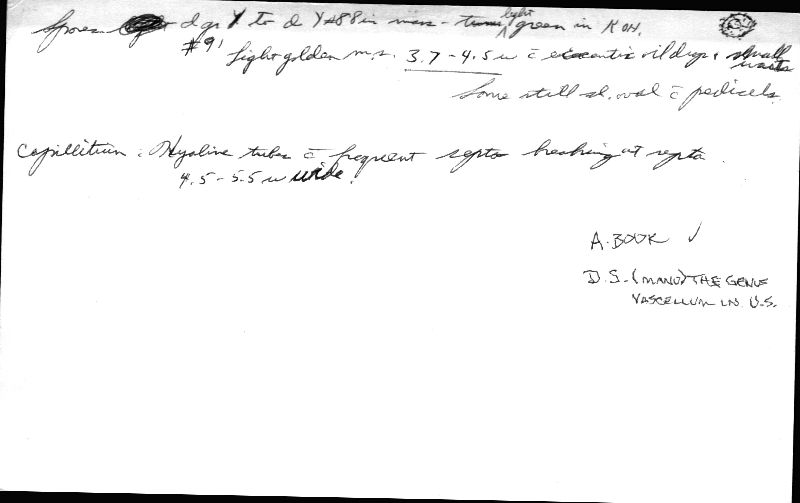 Spores d gr Y to d Y #88 in mass - turns light green in KOH.
#91 light golden m.s. 3.7 - 4.5 u c̄ eccentric oil drop & small warts
Some still sl. oval c̄ pedicels.
Capillitium: Hyaline tubes c̄ frequent septa breaking at septa.
4.5 - 5.5 u wide.
A. BOOK ✓
D.S. (MANU) THE GENUS
VASCELLUM IN U.S.